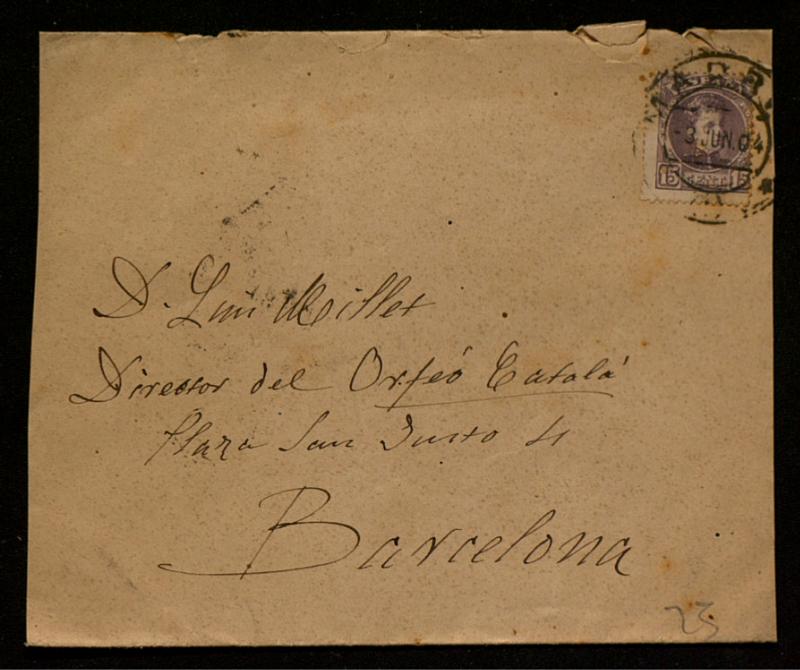 MADRI
3 JUN. 04
15 15
D. Luis Millet
Director del Orfeó Catalá
Plaza San Justo 4
Barcelona
23